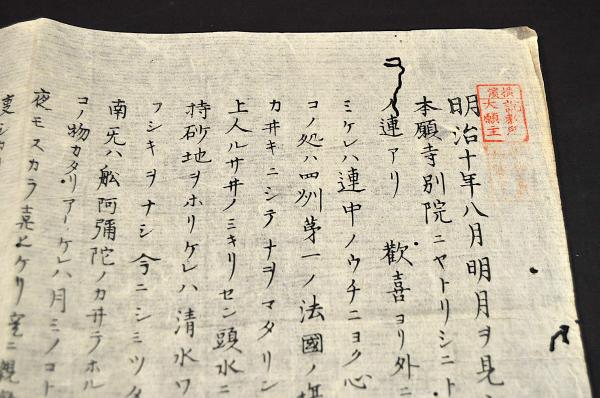 明治十年八月明月ヲ見
本願寺別院ニヤトリシニト
連アリ 歓喜ヨリ外ニ
ミケレハ連中ノウチニヨク心
コノ処ハ四州第一ノ法國ノ
カ井キニシテナヲマタリン
上人ルサ井ノミキリセン頭水ニ
持砂地ヲホリケレハ清水ワ
フシキヲナシ今ニシミツタ
南无ハ舩阿彌陀ノカサラホル
コノ物カタリアーケレハ月ミノコト
夜モスカラ喜ヒケリ
大願主